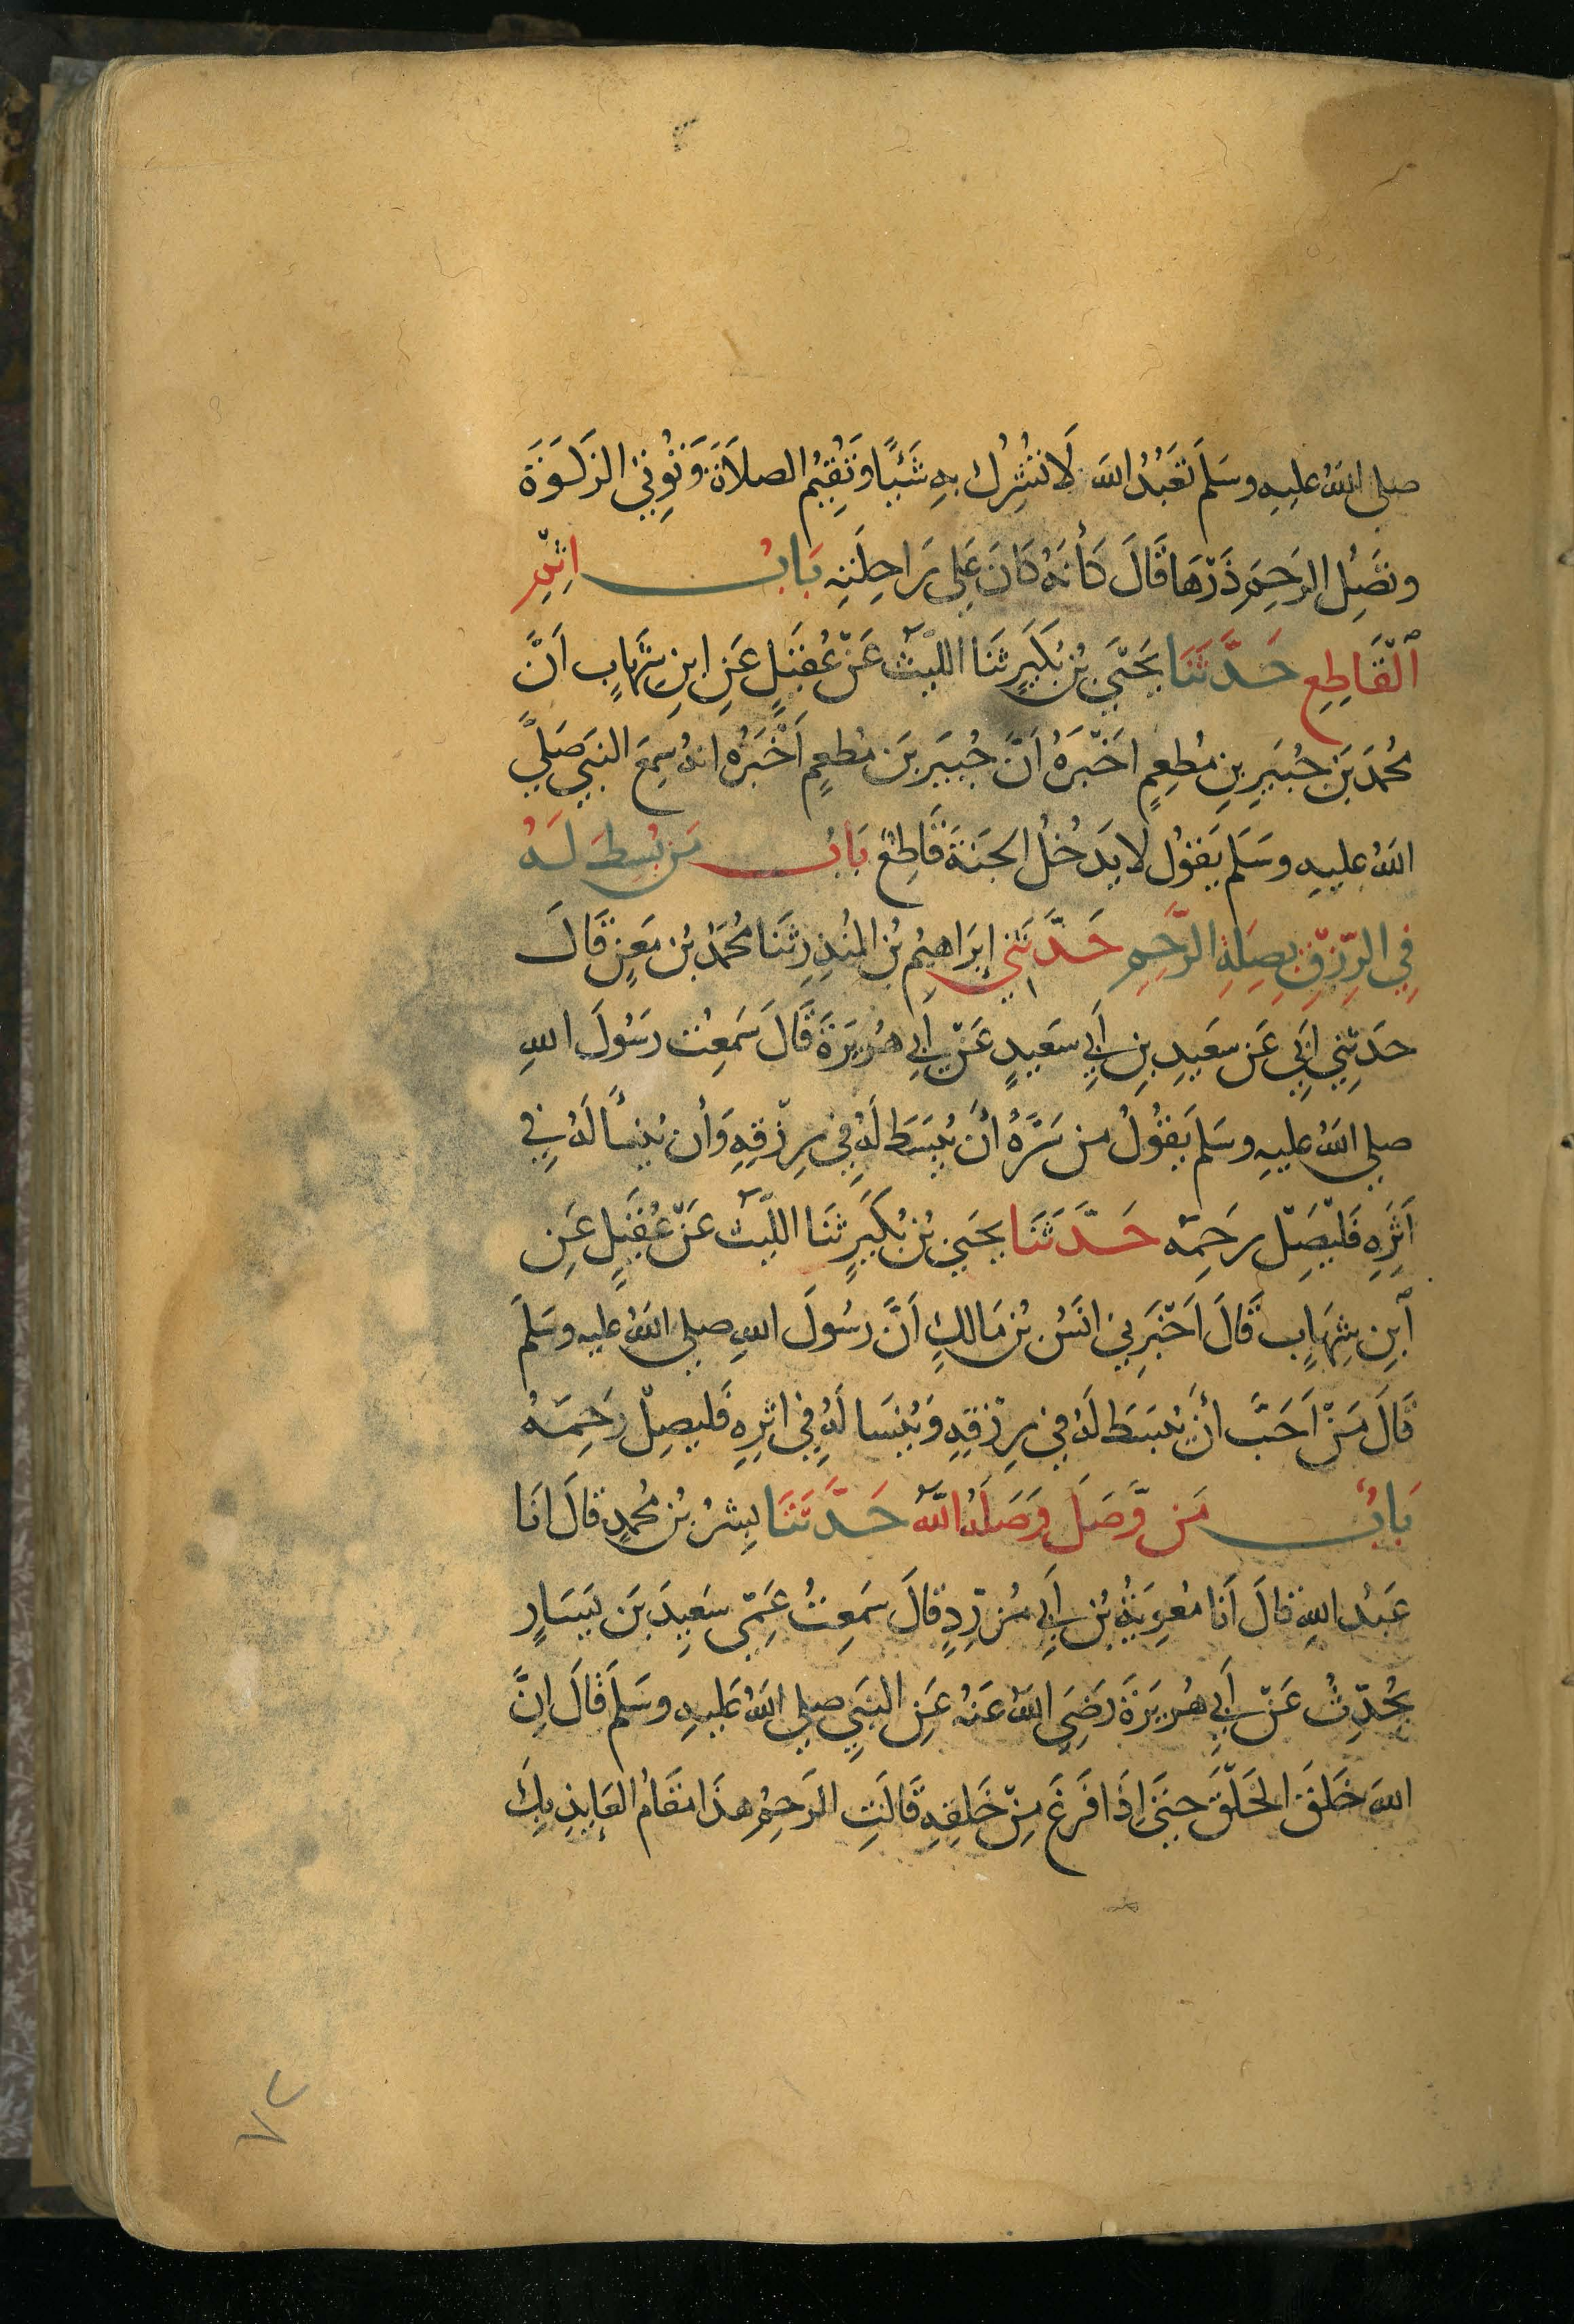 صلى اللهُ عليهِ وسَلمَ تَعَبُدُ اللهَ لَا تشُرِكُ بِهِ شَئًيا وَتُقِيمُ الصلَاةَ وَتُوتِي الزَكَوةَ
وتصَِلُ الرحِمَ ذَرّهَا قَالَ كَأنهُ كَانَ عَلى رَاحِلَتِهِ بَابُ اثِمِ
ٱلّقَاطِعِ حَدَّثَنَا يَحَيَى بُن بُكَيَرٍ ثَنَا اللّيثُ عَنّ عُقَيَلٍ عَنِ ابنِ شِهَابٍ اَنَّ
مُحمَدَ بَنَ جُبَيَرِ بنِ مُطعِمٍ اخَبّرَهُ اَنَّ جُبَيَر بَن مُطعِمٍ اَخّبَرَهُ انهُ سِمَعَ النبَيَ صَلىَّ
اللهُ عليهِ وسَلمَ يَقوُل لا يَدَخُلُ الجَنةَ قَاطِعُ بَابُ مَن بُسِطَ لَهُ
فِي الرِّزقِ بِصِلَةِ الرَّحِمِ حَدَّثَنِي إبرَاهِيُم بُن المُنذِرِ ثَنَا مُحمَدُ بُن مَعَنٍ قَالَ
حَدثِنّي ابَيِ عَن سَعَيدِ بنِ أبَيِ سَعَيدٍ عَنّ أبَيِ هُرَيَرَةَ قَالَ سَمَعِتُ رَسُولَ اللهِ
صلى اللهُ عليهِ وسَلمَ يَقوُلُ من سَرَّهُ أنَ يُبَسَطَ لَهُ فِي رِزّقِهِ وَأن يُنسأَ لَهُ فِي
اَثَرِهِ فَليّصِلّ رحَمِهَ حَدَّثَنَا يحَيَي بُن بُكَيَرٍ ثَنَا اللّيثُ عَنّ عُقَيَلٍ عَنِ
ٱبنِ شِهَابٍ قَالَ اَخّبَرِني انَسُ بُن مَالكٍ اَنَّ رسُولَ اللهِ صلى اللهُ عليه وسَلمَ
قَالَ مَنّ اَحَبَّ أنَ يُبَسَطَ لَهُ فِي رِزّقِهِ وَيُنَسا لَهُ فِي اثرِهِ فَليصِلّ رَحِمَهُ
بَابُ مَن وَّصَلَ وَصَلَهُ اللّهُ حَدَّثَنَا بِشرُ بُن مُحمدٍ قالَ انَا
عَبُد اللهِ قالَ اَنَا مُعوِيَةُ بُن أبَيِ مُزَرِّدٍ قالَ سَمَعِتُ عَمِّى سَعِيدَ بَن يَسَارٍ
يُحَدِّثُ عَنّ أبَيِ هُرَيَرَةَ رَضِيَ اللهُ عَنهُ عَنِ النبَيِ صلى اللهُ عَليهِ وسَلمَ قَالَ اِنَّ
اللهَ خَلقَ الخَلّقَ حتَىَ اِذَا فَرغَ مِنّ خَلقِهِ قَالَتِ الرَحِمُ هذَا مقَامُ العَايذِ بِكَ
٧٢